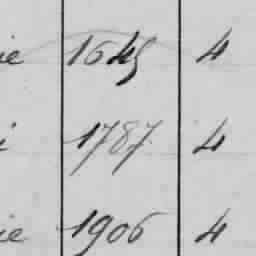 ie 1645 4
i 1787. 4
ie 1906 4